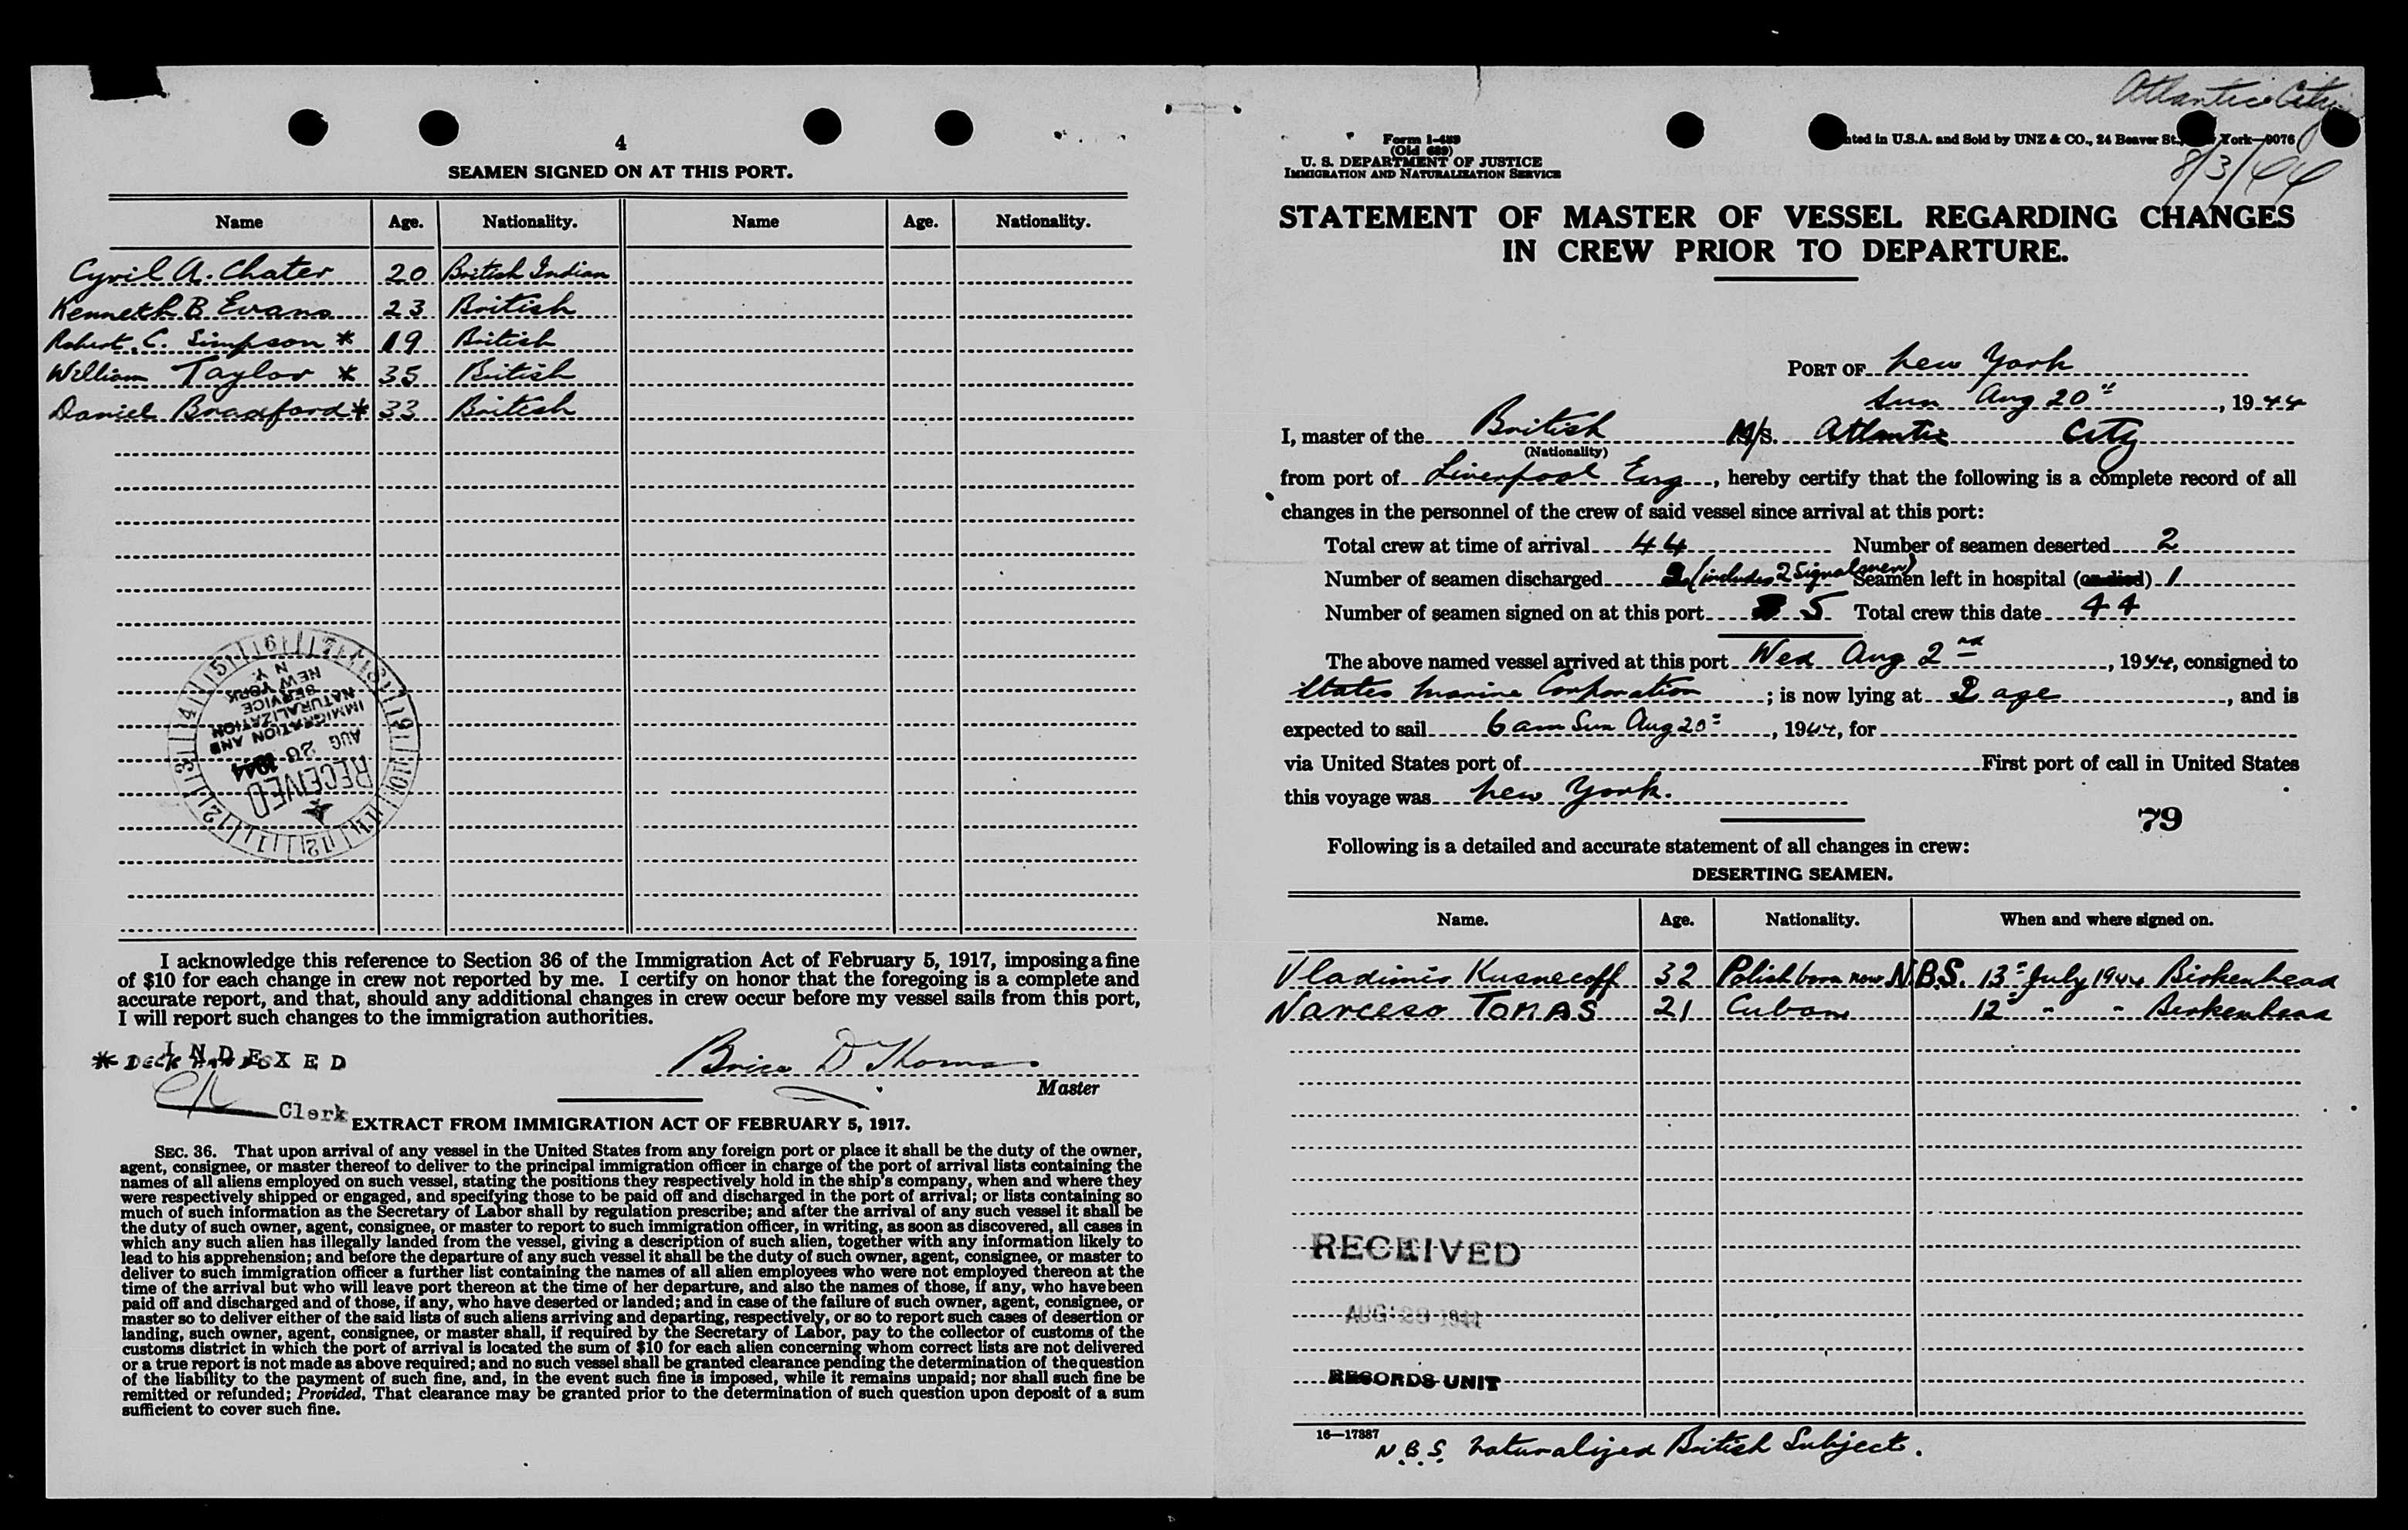 4
SEAMEN SIGNED ON AT THIS PORT.
Name Age. Nationality. Name Age. Nationality.
Cyril A. Chater 20 British Indian
Kenneth B Evans 23 British
Robert C. Simpson * 19 British
William Taylor * 35 British
Daniel Bradford * 33 British
RECEIVED
AUG 1944
IMMIGRATION AND
NATURALIZATION
SERVICE
NEW YORK
N Y
I acknowledge this reference to Section 36 of the Immigration Act of February 5, 1917, imposing a fine
of $10 for each change in crew not reported by me. I certify on honor that the foregoing is a complete and
accurate report, and that, should any additional changes in crew occur before my vessel sails from this port,
I will report such changes to the immigration authorities.
* Deck
INDEXED
Brice D Thomas
Master
Clerk
EXTRACT FROM IMMIGRATION ACT OF FEBRUARY 5, 1917.
SEC. 36. That upon arrival of any vessel in the United States from any foreign port or place it shall be the duty of the owner,
agent, consignee, or master thereof to deliver to the principal immigration officer in charge of the port of arrival lists containing the
names of all aliens employed on such vessel, stating the positions they respectively hold in the ship's company, when and where they
were respectively shipped or engaged, and specifying those to be paid off and discharged in the port of arrival; or lists containing so
much of such information as the Secretary of Labor shall by regulation prescribe; and after the arrival of any such vessel it shall be
the duty of such owner, agent, consignee, or master to report to such immigration officer, in writing, as soon as discovered, all cases in
which any such alien has illegally landed from the vessel, giving a description of such alien, together with any information likely to
lead to his apprehension; and before the departure of any such vessel it shall be the duty of such owner, agent, consignee, or master to
deliver to such immigration officer a further list containing the names of all alien employees who were not employed thereon at the
time of the arrival but who will leave port thereon at the time of her departure, and also the names of those, if any, who have been
paid off and discharged and of those, if any, who have deserted or landed; and in case of the failure of such owner, agent, consignee, or
master so to deliver either of the said lists of such aliens arriving and departing, respectively, or so to report such cases of desertion or
landing, such owner, agent, consignee, or master shall, if required by the Secretary of Labor, pay to the collector of customs of the
customs district in which the port of arrival is located the sum of $10 for each alien concerning whom correct lists are not delivered
or a true report is not made as above required; and no such vessel shall be granted clearance pending the determination of the question
of the liability to the payment of such fine, and, in the event such fine is imposed, while it remains unpaid; nor shall such fine be
remitted or refunded; Provided, That clearance may be granted prior to the determination of such question upon deposit of a sum
sufficient to cover such fine.
Atlantic City
8/3/44
Form I-489
(Old 689)
U. S. DEPARTMENT OF JUSTICE
IMMIGRATION AND NATURALIZATION SERVICE
in U.S.A. and Sold by UNZ & CO., 24 Beaver St., York—9076
STATEMENT OF MASTER OF VESSEL REGARDING CHANGES
IN CREW PRIOR TO DEPARTURE.
PORT OF New York
Sun Aug 20th, 1944
I, master of the British M/S. Atlantic City
(Nationality)
from port of Liverpool Eng, hereby certify that the following is a complete record of all
changes in the personnel of the crew of said vessel since arrival at this port:
Total crew at time of arrival 44 Number of seamen deserted 2
Number of seamen discharged 2 (includes 2 Signalmen) Seamen left in hospital (or died) 1
Number of seamen signed on at this port 5 Total crew this date 44
The above named vessel arrived at this port Wed Aug 2nd, 1944, consigned to
States Marine Corporation; is now lying at , and is
expected to sail 6 am Sun Aug 20th, 1944, for
via United States port of First port of call in United States
this voyage was New York.
79
Following is a detailed and accurate statement of all changes in crew:
DESERTING SEAMEN.
Name. Age. Nationality. When and where signed on.
Vladimir Kusnecoff 32 Polish born now N.B.S. 13th July 1944 Birkenhead
Narceso TOMAS 21 Cuban 12th " " Birkenhead
RECEIVED
AUG
RECORDS UNIT
16—17387
N.B.S. Naturalized British Subject.